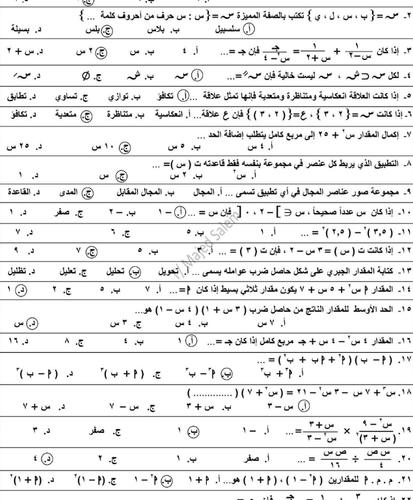 ٢. سـ = { ب ، س ، ل ، ي } تكتب بالصفة المميزة سـ = { س : س حرف من أحرف كلمة ... }
أ. سلسبيل ب. بلابس ج. يلبس د. بسيلة
٣. إذا كان ١/(س−٢) + ١/(س+٢) = جـ/(س²−٤) فإن جـ = ... أ. ٤ ب. س ج. ٢ س د. س + ٢
٤. لكل سـ ⊂ شـ ، سـ ليست خالية فإن سـ = ... أ. سـ ب. شـ ج. ∅ د. سـ
٥. إذا كانت العلاقة انعكاسية ومتناظرة ومتعدية فإنها تمثل علاقة ... أ. تكافؤ ب. توازي ج. تساوي د. تطابق
٦. إذا كانت سـ = { ٢ ، ٣ } ، ع = { ( ٢ ، ٣ ) } فإن ع علاقة... أ. انعكاسية ب. متناظرة ج. متعدية د. تكافؤ
٧. إكمال المقدار س² + ٢٥ إلى مربع كامل يتطلب إضافة الحد ...
أ. ٤ س ب. ٥ س ج. ١٠ س د. ٢٥ س
٨. التطبيق الذي يربط كل عنصر في مجموعة بنفسه فقط قاعدته ت ( س ) = ...
أ. س² ب. ٢ س ج. س د. ١
٩. مجموعة صور عناصر المجال في أي تطبيق تسمى ... أ. المجال ب. المجال المقابل ج. المدى د. القاعدة
١٠. إذا كان س عدداً صحيحاً ، س ∈ ] −٢ ، ٠ [ فإن س = ... أ. −١ ب. −٢ ج. صفر د. ١
١١. (٣,٥)² − (٢,٥)² = ... أ. ١ ب. ٥ ج. ٦ د. ٧
١٢. إذا كانت ت ( س ) = ٣ س − ٢ ، فإن ت ( ٣ ) = ... أ. ٢ ب. ٥ ج. ٧ د. ٩
١٣. كتابة المقدار الجبري على شكل حاصل ضرب عوامله يسمى ... أ. تحويل ب. تحليل ج. تعليل د. تظليل
١٤. المقدار أ س² + ٥ س + ٧ يكون مقدار ثلاثي بسيط إذا كان أ = ... أ. ٧ ب. ٥ ج. ٢ د. ١
١٥. الحد الأوسط للمقدار الناتج من حاصل ضرب ( ٣ س + ١ ) ( ٤ س − ١ ) هو...
أ. ٧ س ب. ٤ س ج. ٣ س د. س
١٦. المقدار ٤ س² − ٤ س + جـ مربع كامل إذا كان جـ = ... أ. ١ ب. ٤ ج. ٨ د. ١٦
١٧. ( أ − ب ) ( أ² + أ ب + ب² ) = ...
أ. أ³ + ب³ ب. أ³ − ب³ ج. ( أ − ب )² د. ( أ − ب )³
١٨. س³ + ٧ س − ٣ س² − ٢١ = ( س² + ٧ ) ( ............. )
أ. س − ٣ ب. س + ٣ ج. س − ٧ د. س + ٧
١٩. (س² − ٩)/(س + ٣)² × (س + ٣)/(س − ٣) = ... أ. −١ ب. ١ ج. صفر د. ٣
٢٠. س ص/٤ ÷ ص س/١٦ = ... أ. صفر ب. ١ ج. ٢ د. ٤
٢١. م . م . أ للمقدارين ( أ² − ١ ) ، ( أ + ١ ) هو... أ. أ + ١ ب. أ² − ١ ج. ( أ − ١ )² د. ( أ + ١ )²
Majed Salem